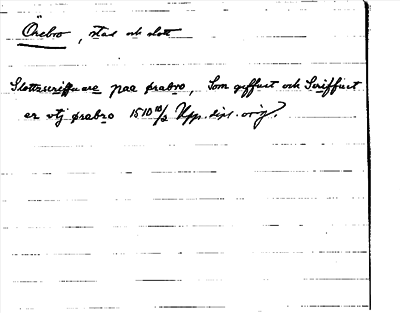 Örebro, stad och slott
Slottzscriffuare paa Ørabro, Som giffuet och Scriffuet
er vtj Ørabro 1510 10/2 Upp. dipl. orig.